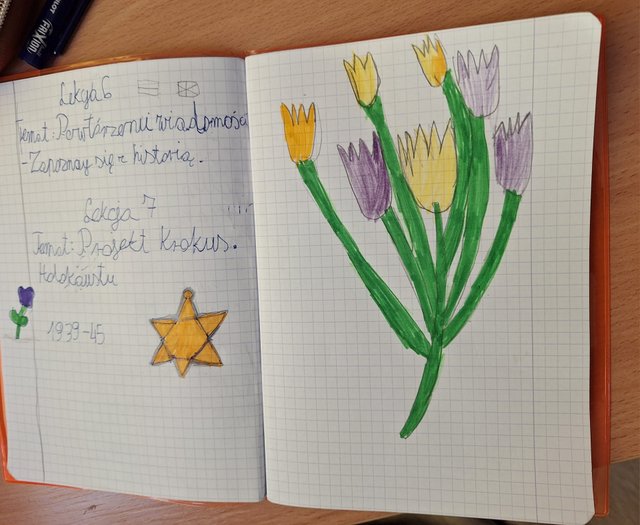 PILOT
FriXion
Lekcja 6
Temat: Powtórzenie wiadomości
- Zapoznaj się z historią.
Lekcja 7
Temat: Projekt Krokus.
Holokaustu
1939-45